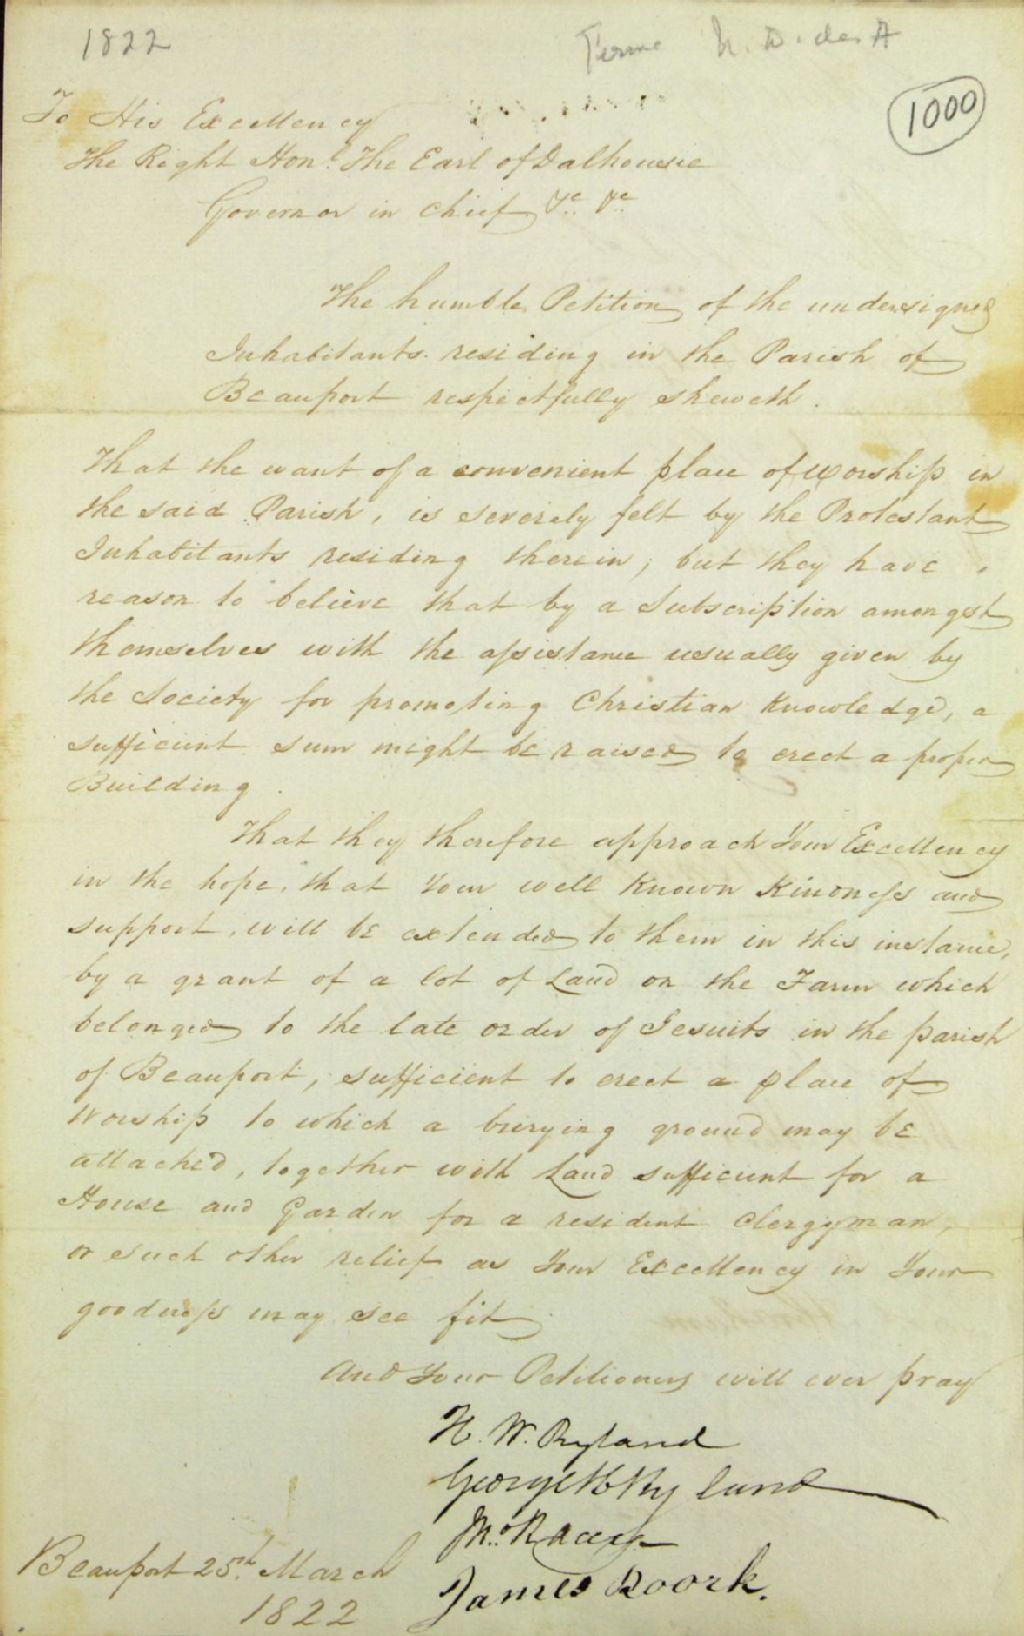 1822
Terre N. D. des A
1000
To His Excellency
The Right Honl. The Earl of Dalhousie
Governor in Chief &c &c
The humble Petition of the undersigned
Inhabitants residing in the Parish of
Beauport respectfully sheweth.
That the want of a convenient place of worship in
the said Parish, is severely felt by the Protestant
Inhabitants residing therein; but they have
reason to believe that by a Subscription amongst
themselves with the assistance usually given by
the Society for promoting Christian Knowledge, a
sufficient sum might be raised to erect a proper
Building.
That they therefore approach Your Excellency
in the hope, that Your well known Kindness and
support, will be extended to them in this instance,
by a grant of a lot of Land on the Farm which
belonged to the late order of Jesuits in the parish
of Beauport, sufficient to erect a place of
Worship to which a burying ground may be
attached, together with Land sufficient for a
House and Garden for a resident Clergyman,
or such other relief as Your Excellency in Your
goodness may see fit
And Your Petitioners will ever pray
H. W. Ryland
George H Ryland
James Roork.
Beauport 25th. March
1822